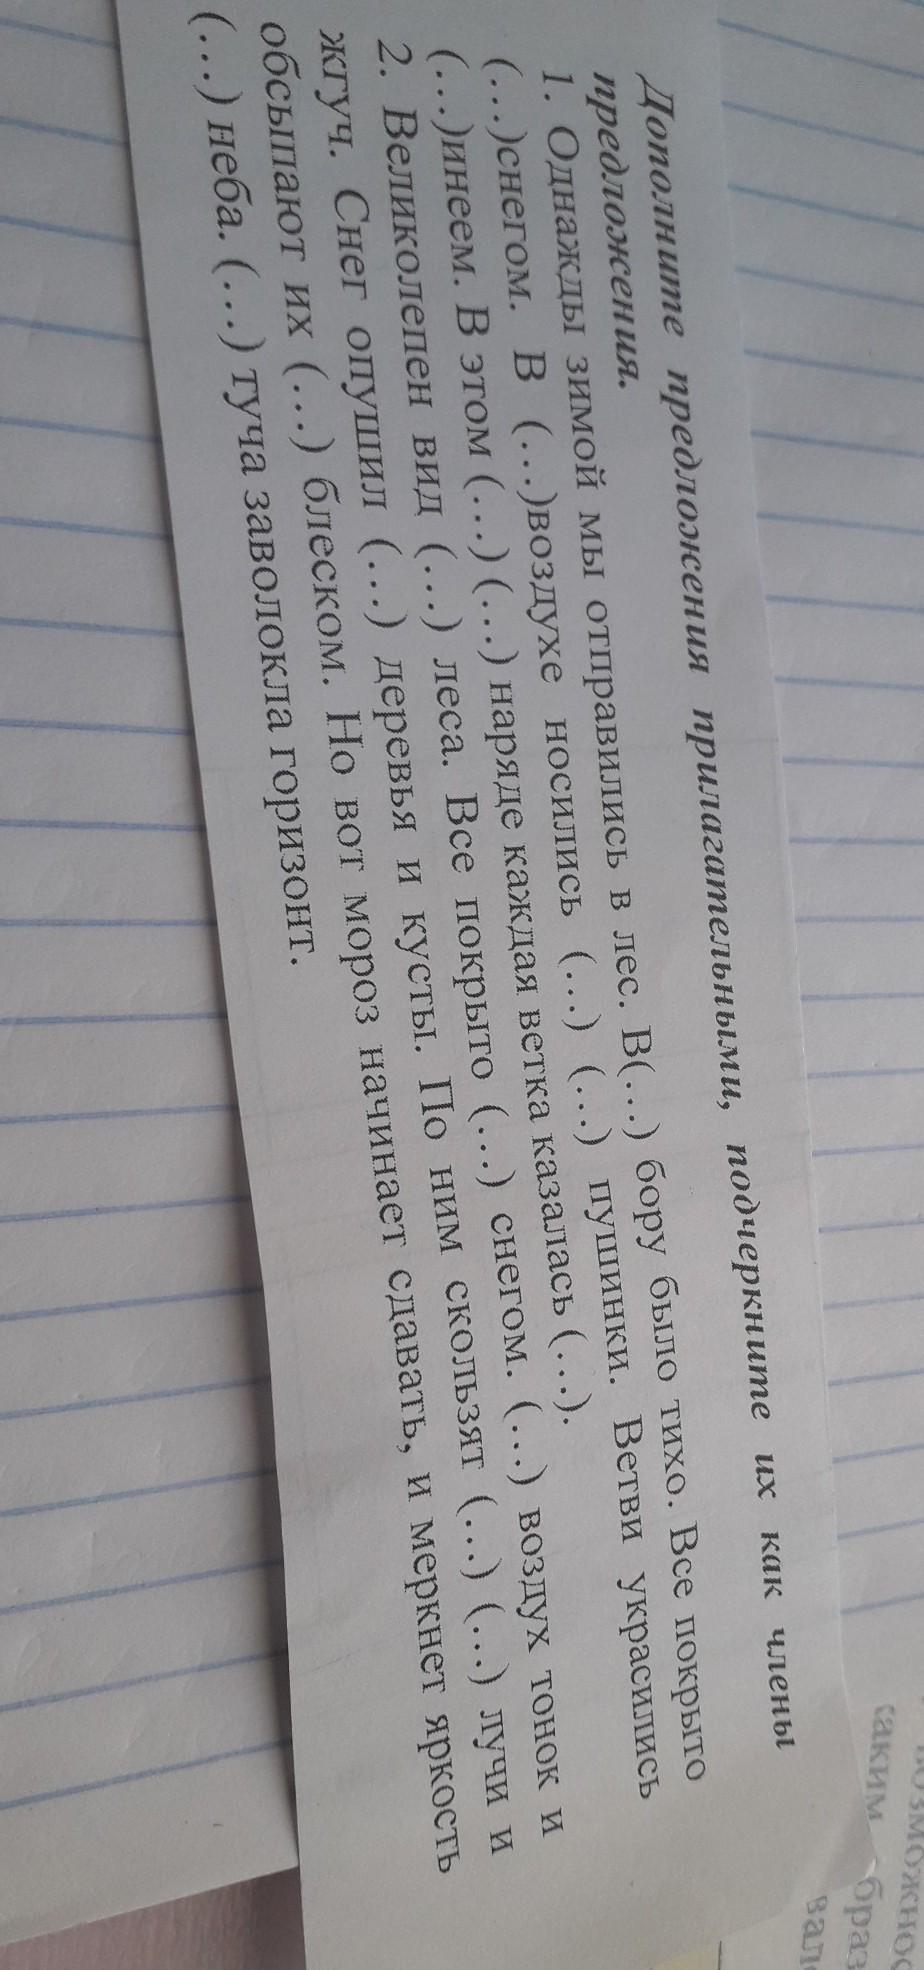 Дополните предложения прилагательными, подчеркните их как члены
предложения.
1. Однажды зимой мы отправились в лес. В(...) бору было тихо. Все покрыто
(...)снегом. В (...)воздухе носились (...) (...) пушинки. Ветви украсились
(...)инеем. В этом (...) (...) наряде каждая ветка казалась (...).
2. Великолепен вид (...) леса. Все покрыто (...) снегом. (...) воздух тонок и
жгуч. Снег опушил (...) деревья и кусты. По ним скользят (...) (...) лучи и
обсыпают их (...) блеском. Но вот мороз начинает сдавать, и меркнет яркость
(...) неба. (...) туча заволокла горизонт.